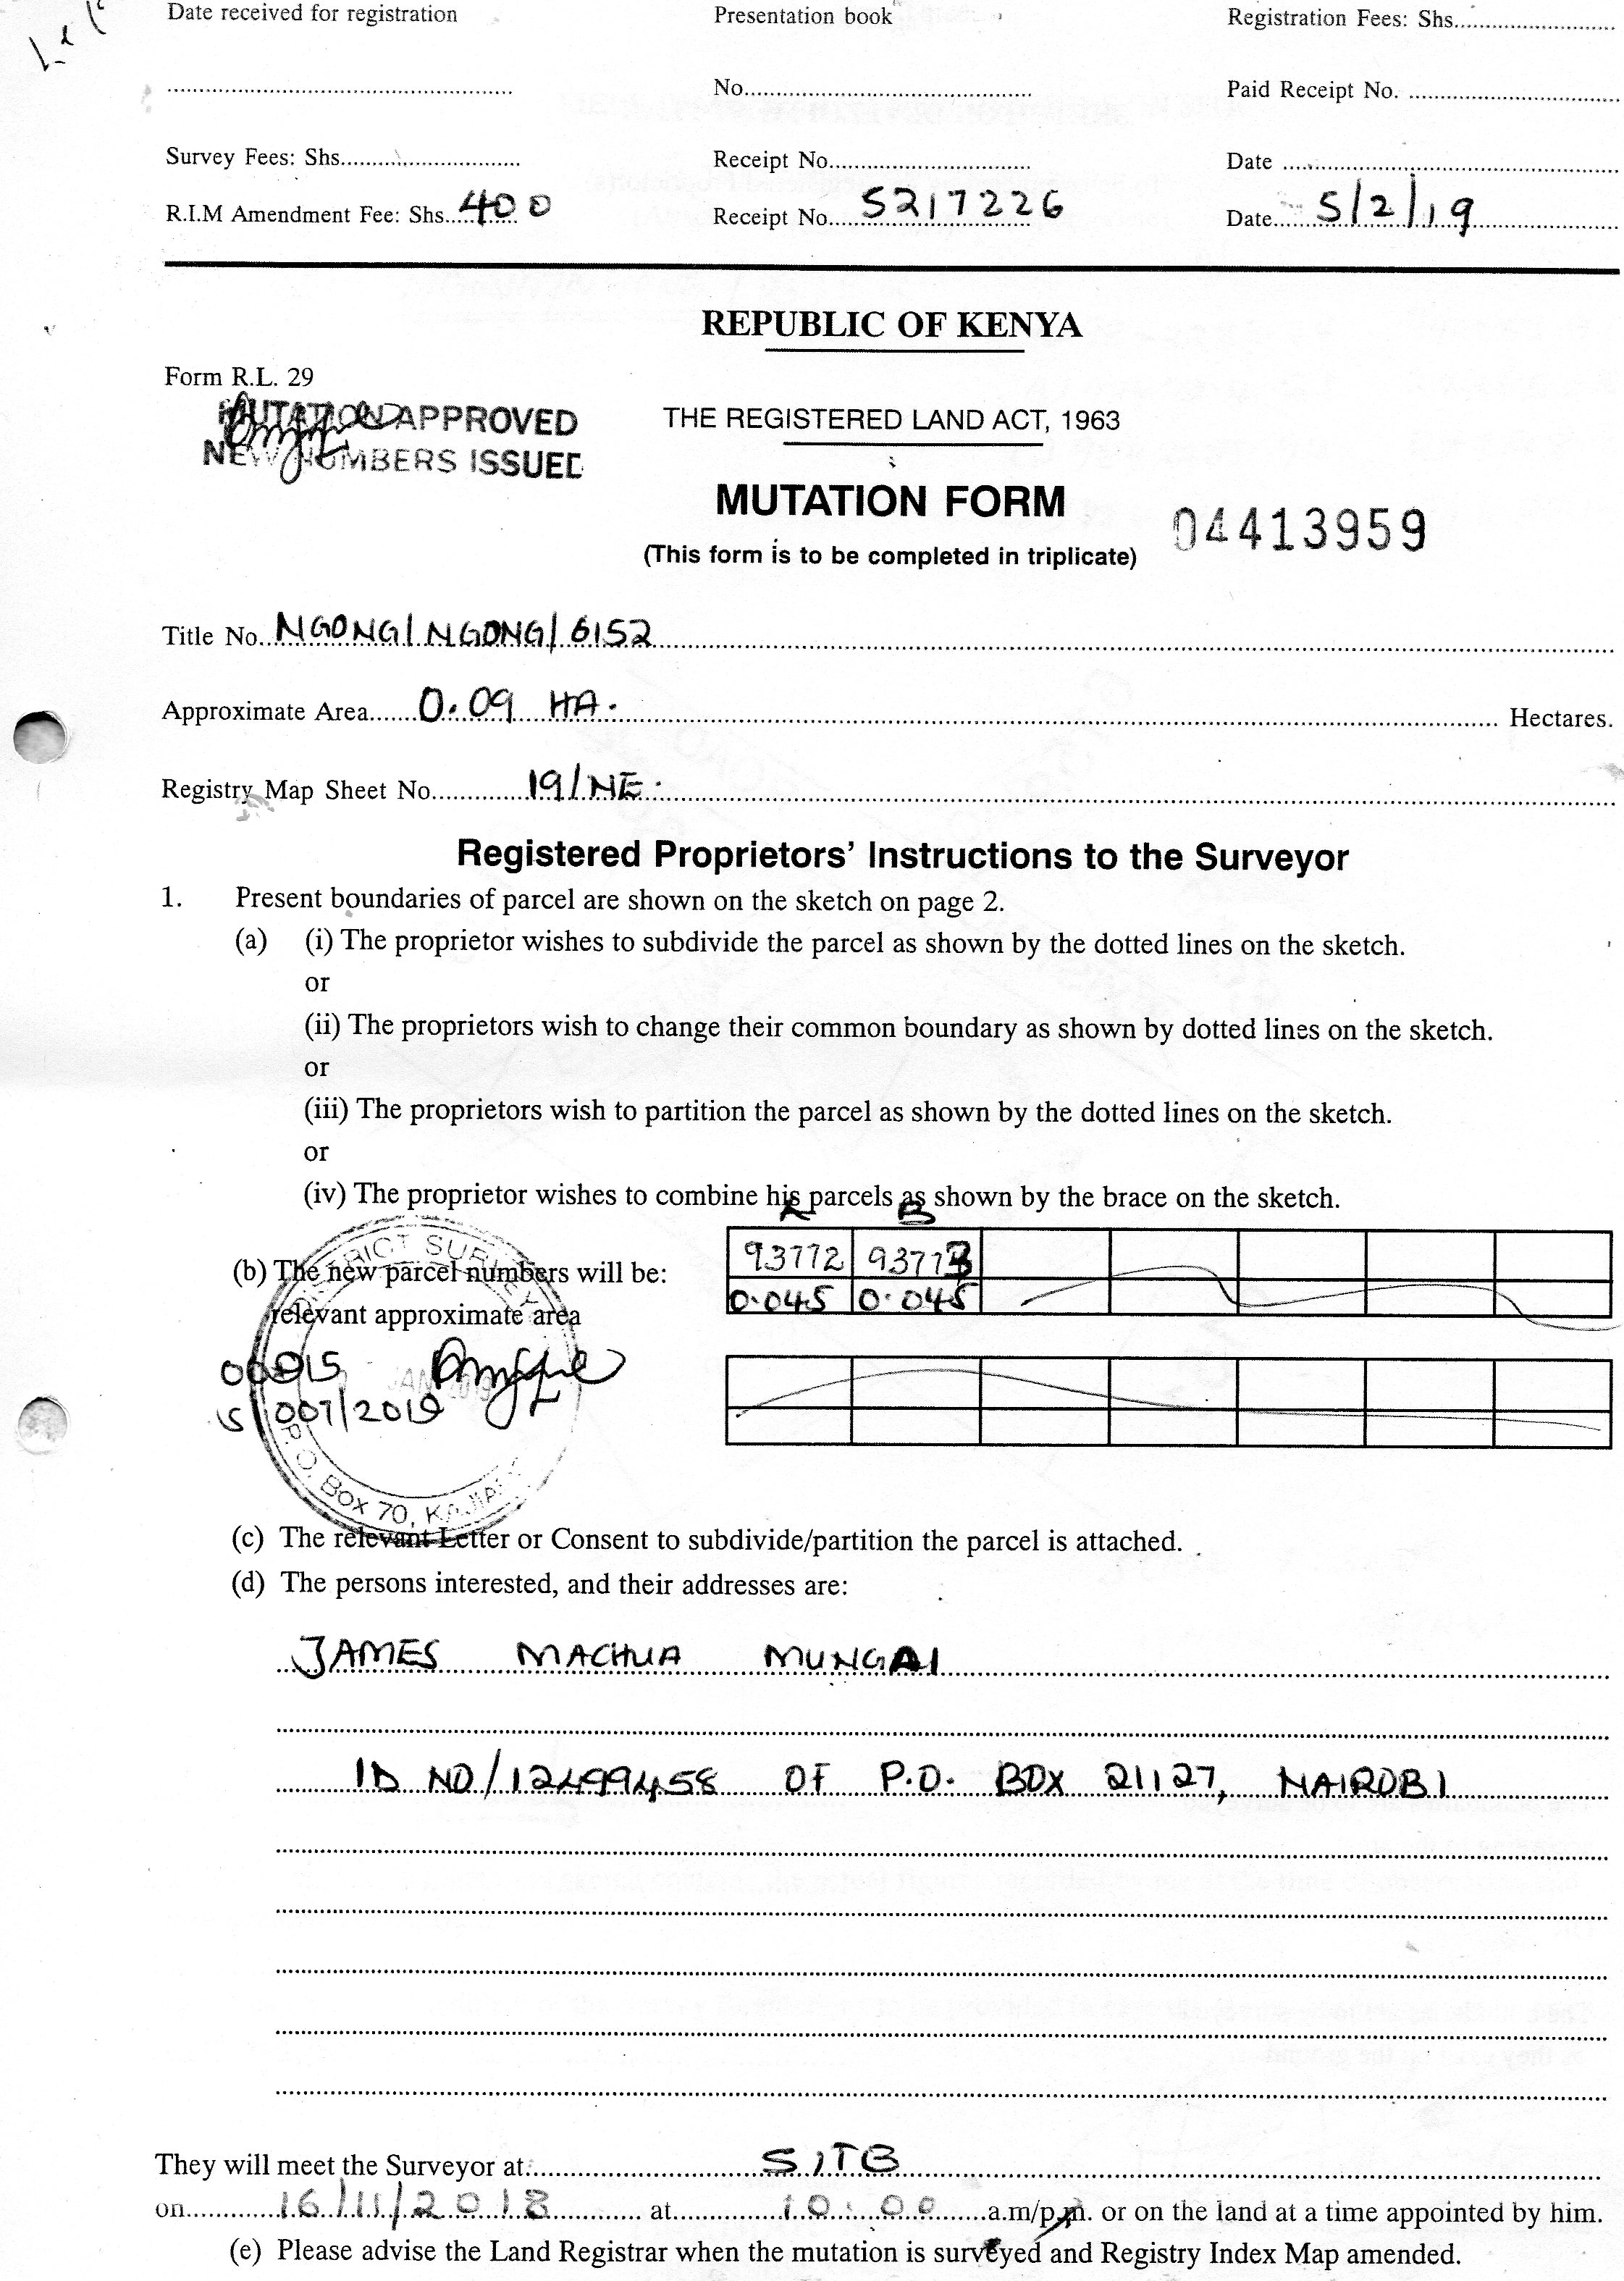 Date received for registration Presentation book Registration Fees: Shs..............................
.................................................... No............................................ Paid Receipt No. ..............................
Survey Fees: Shs........................... Receipt No.............................. Date ..................................................
R.I.M Amendment Fee: Shs...400 Receipt No...5217226 Date...5/2/19
REPUBLIC OF KENYA
Form R.L. 29
MUTATION APPROVED
NEW NUMBERS ISSUED
THE REGISTERED LAND ACT, 1963
MUTATION FORM
04413959
(This form is to be completed in triplicate)
Title No...NGONG/NGONG/6152
Approximate Area.......0.09 HA. Hectares.
Registry Map Sheet No.............19/NE.
Registered Proprietors' Instructions to the Surveyor
1. Present boundaries of parcel are shown on the sketch on page 2.
(a) (i) The proprietor wishes to subdivide the parcel as shown by the dotted lines on the sketch.
or
(ii) The proprietors wish to change their common boundary as shown by dotted lines on the sketch.
or
(iii) The proprietors wish to partition the parcel as shown by the dotted lines on the sketch.
or
(iv) The proprietor wishes to combine his parcels as shown by the brace on the sketch.
A B
(b) The new parcel numbers will be: 93772 93773
relevant approximate area 0.045 0.045
DISTRICT SURVEY
JAN 2019
/007/2019
P.O. Box 70, KAJIA
(c) The relevant Letter or Consent to subdivide/partition the parcel is attached.
(d) The persons interested, and their addresses are:
JAMES MACHUA MUNGAI
ID NO/12499458 OF P.O. BOX 21127, NAIROBI
They will meet the Surveyor at...SITE
on...16/11/2018 at...10:00 a.m/p.m. or on the land at a time appointed by him.
(e) Please advise the Land Registrar when the mutation is surveyed and Registry Index Map amended.